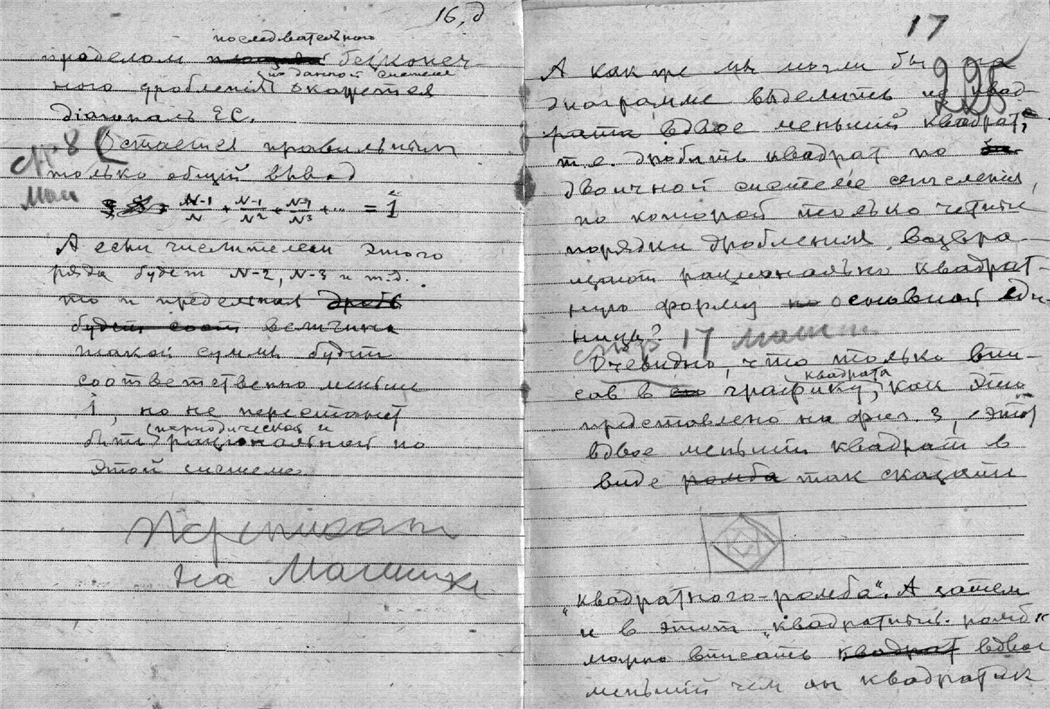 16, д
последовательного
пределом бесконеч-
по данной системе
ного дробленія окажется
діагональ ЕС.
Остается правильным
только общій вывод
N-1/N + N-1/N² + N-1/N³ + ... = 1
А если числителем этого
ряда будет N-2, N-3 и т.д.
то и предельная дробь
будет величина
такой суммы будет
соответственно меньше
1, но не перестанет
періодической и
быть раціональной по
этой системе.
Переписать
на Машинке
17
225
А как же мы могли бы на
диаграмме выделить из квад-
рата вдвое меньший квадрат,
т.е. дробить квадрат по
двоичной системе счисления,
по которой только четные
порядки дробления возвра-
щают рационально квадрат-
ную форму основной еди-
ницы?
стр 17 машин
Очевидно, что только впи-
квадрата
сав в графику, как это
представлено на фиг. 3, этот
вдвое меньший квадрат в
виде ромба так сказать
„квадратного-ромба“. А затем
и в этот „квадратный-ромб“
можно вписать квадрат вдвое
меньший чем он квадратик